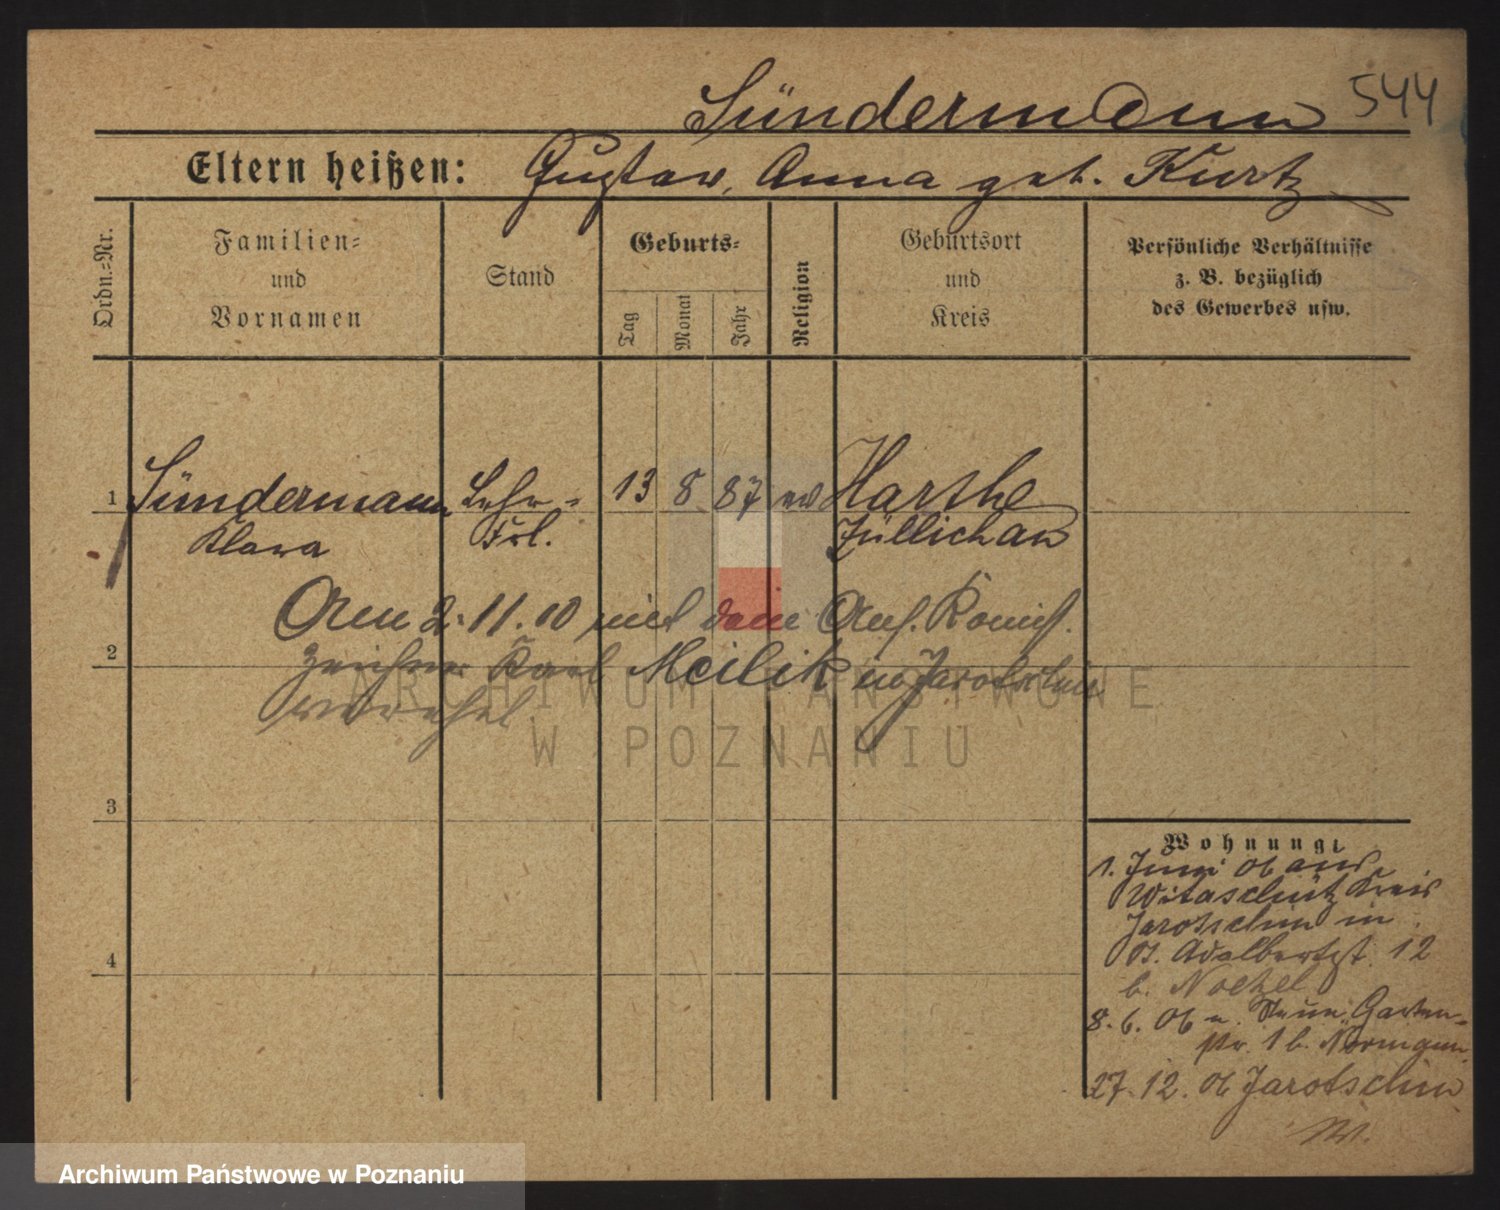 Sündermann 544
Eltern heißen: Gustav, Anna geb. Kurtz
Ordn.=Nr.
Familien=
und
Vornamen
Stand
Geburts=
Tag
Monat
Jahr
Religion
Geburtsort
und
Kreis
Persönliche Verhältnisse
z. B. bezüglich
des Gewerbes usw.
1 Sündermann Lehr- 13 8 87 ev Harthe
Klara Frl. Züllichau
Am 2. 11. 10 mit dem
2 Karl in Jarotschin
3
4
Wohnung:
1. Juni 06 aus
Witaschütz Kreis
Jarotschin in
St. Adalbertst. 12
b. Noetzel
8. 6. 06 n. Garten-
str. 1 b.
27. 12. 06 Jarotschin
ARCHIWUM PAŃSTWOWE
W POZNANIU
Archiwum Państwowe w Poznaniu